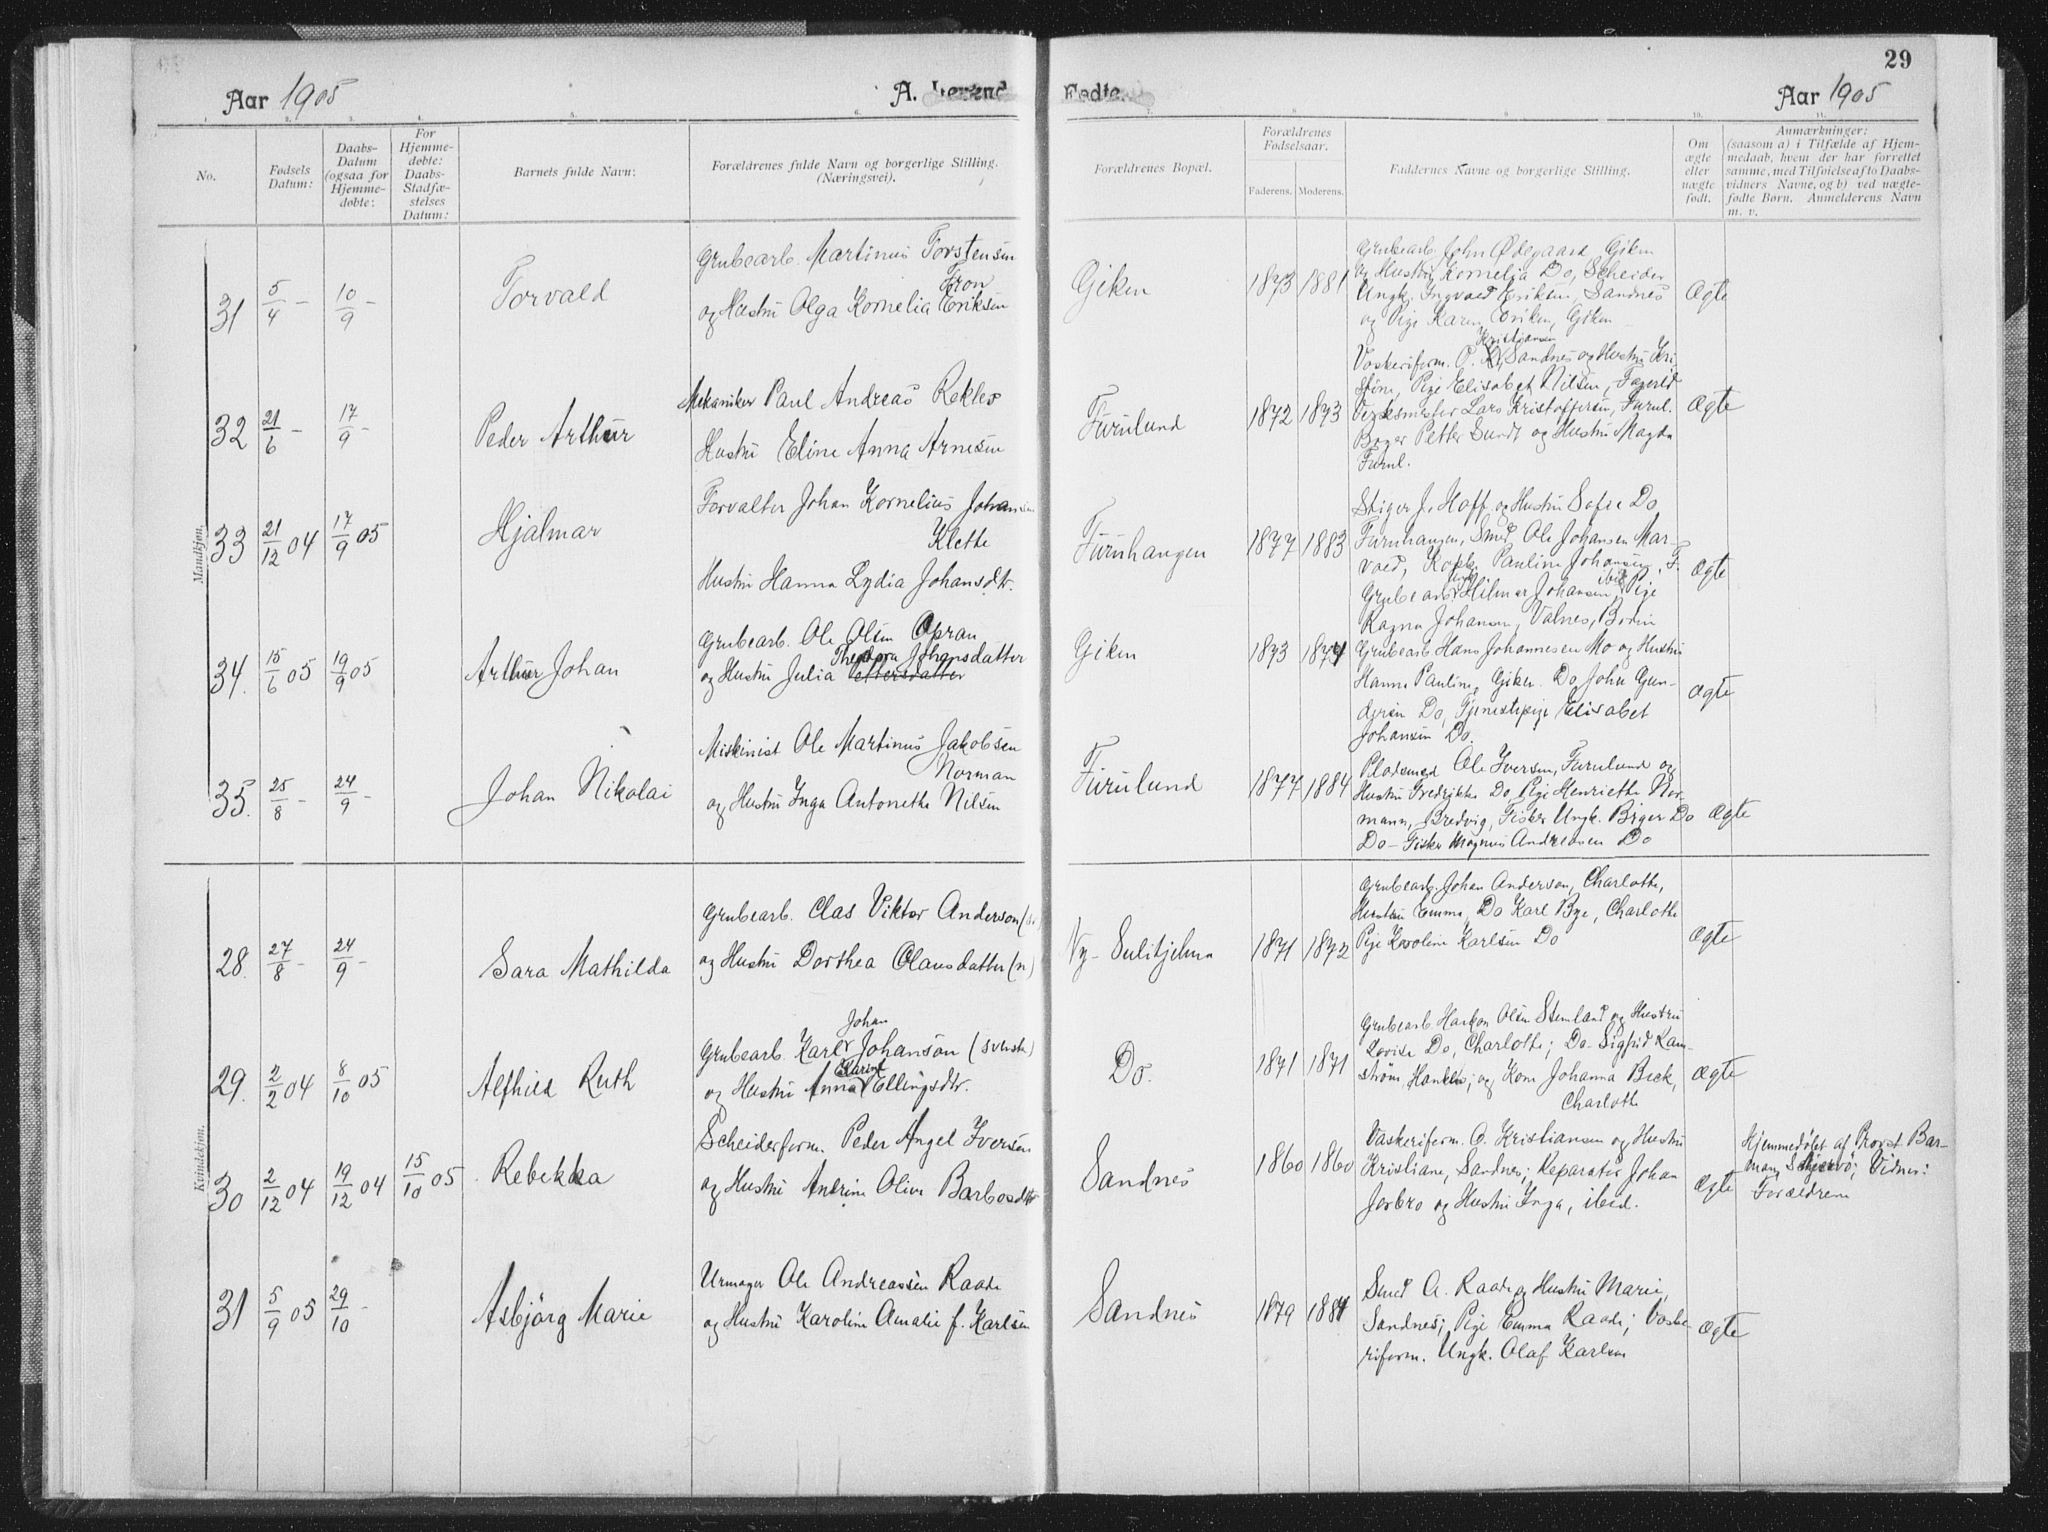 29
Aar 1905
A. Levend
Fødte.
Aar 1905
1. 2. 3. 4. 5. 6. 7. 8. 9. 10. 11.
No.
Fødsels
Datum:
Daabs-
Datum
(ogsaa for
Hjemme-
døbte:
For
Hjemme-
døbte:
Daabs-
Stadfæ-
stelses
Datum:
Barnets fulde Navn:
Forældrenes fulde Navn og borgerlige Stilling.
(Næringsvei).
Forældrenes Bopæl.
Forældrenes
Fødselsaar.
Faderens. Moderens.
Faddernes Navne og borgerlige Stilling.
Om
ægte
eller
nægte
født.
Anmærkninger:
(saasom a) i Tilfælde af Hjem-
medaab, hvem der har forrettet
samme, med Tilføielse af to Daabs-
vidners Navne, og b) ved nægte-
fødte Børn. Anmelderens Navn
m. v.
Mandkjøn.
31 5/4 - 10/9 -
Torvald
Grubearb. Martinus Torstensen
Tron
og Hustru Olga Kornelia Eriksen
Giken
1873 1881
Grubearb. John Ødegaard, Giken
og Hustru Kornelia Do, Scheider
Ungk. Ingvald Eriksen, Sandnes
og Pige Karen Eriken, Giken
Ægte
32 21/6 - 17/9 -
Peder Arthur
Mekaniker Paul Andreas Rekles
Hustru Eline Anna Arnesen
Furulund
1872 1873
Kristiansen
Vaskeriform. O. K, Sandnes og Hustru Kri
stine, Pige Elisabet Nilsen, Fagerld
Verksmester Lars Kristoffersen, Furul.
Bager Petter Sundt og Hustru Magda
Furul.
Ægte
33 21/12 04 17/9 05
Hjalmar
Forvalter Johan Kornelius Johansen
Klette
Hustru Hanna Lydia Johansdtr.
Furuhaugen
1877 1883
Stiger J. Hoff og Hustru Sofie Do,
Furuhaugen, Smed Ole Johansen Mar-
vold, Kokk. Pauline Johansen, F.
Grubearb. Hilmar Johansen ibid, Pige
Ragna Johansen, Valnes, Bodin
Ægte
34. 15/6 05 19/9 05
Arthur Johan
Grubearb. Ole Olsen Opran
Theodora Johansdatter
og Hustru Julia Pettersdatter
Giken
1873 1874
Grubearb Hans Johannesen Mo og Hustru
Hanna Pauline, Giken. Do John Gun-
dersen Do, Tjenestepige Elisabet
Johansen Do.
Ægte
35. 25/8 - 24/9 -
Johan Nikolai
Maskinist Ole Martinus Jakobsen
Norman
og Hustru Inga Antonethe Nilsen
Furulund
1877 1884
Pladsmed Ole Iversen, Furulund og
Hustru Fredrikke Do, Pige Henriette Nor-
mann, Bredvig, Fisker Ungk. Birger Do
Do - Fisker Magnus Andreasen Do
Ægte
Kvindekjøn.
28. 27/8 - 24/9 -
Sara Mathilda
Grubearb. Clas Viktor Anderson (sv)
og Hustru Dorthea Olausdatter (n)
Ny-Sulitjelma
1871 1872
Grubearb. Johan Anderson, Charlotte,
Hustru Emma, Do Karl Bye, Charlotte
Pige Karoline Karlsen Do
Ægte
29. 2/2 04 8/10 05
Alfhild Ruth
Johan
Grubearb. Karl Johanson (svensk)
Karine
og Hustru Anna Ellingsdtr.
Do.
1871 1871
Grubearb Haakon Olsen Stemland og Hustru
Lovise Do, Charlotte; Do. Sigfrid Kam-
strøm, Hanken; og Kone Johanna Beck,
Charlotte
Ægte
30 2/12 04 19/12 04 15/10 05
Rebekka
Scheiderform. Peder Angel Iversen
og Hustru Andrine Olive Barbosdtr
Sandnes
1860 1860
Vaskeriform. O. Kristiansen og Hustru
Kristiane, Sandnes; Reparatør Johan
Jorbro og Hustru Inga, ibid.
Ægte
Hjemmedøbt af Provst Bar-
man, Skjervø; Vidner:
Forældrene
31 5/9 05 29/10 -
Asbjörg Marie
Urmager Ole Andreassen Raade
og Hustru Karoline Amalie f. Karlsen
Sandnes
1879 1884
Smed A. Raade og Hustru Marie,
Sandnes; Pige Emma Raade; Vaske-
riform. Ungk. Olaf Karlsen
Ægte